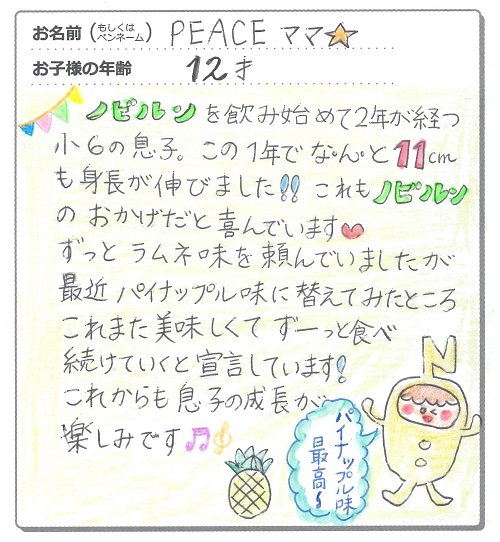 お名前（もしくはペンネーム） PEACE ママ★
お子様の年齢 12才
ノビルン を飲み始めて2年が経つ
小6の息子。この1年でなんと11cm
も身長が伸びました!! これもノビルン
の おかげだと喜んでいます♥
ずっと ラムネ味を頼んでいましたが
最近 パイナップル味に替えてみたところ
これまた美味しくて ずーっと食べ
続けていくと宣言しています!
これからも息子の成長が
楽しみです♫𝄞
パイナップル味
最高〜
N